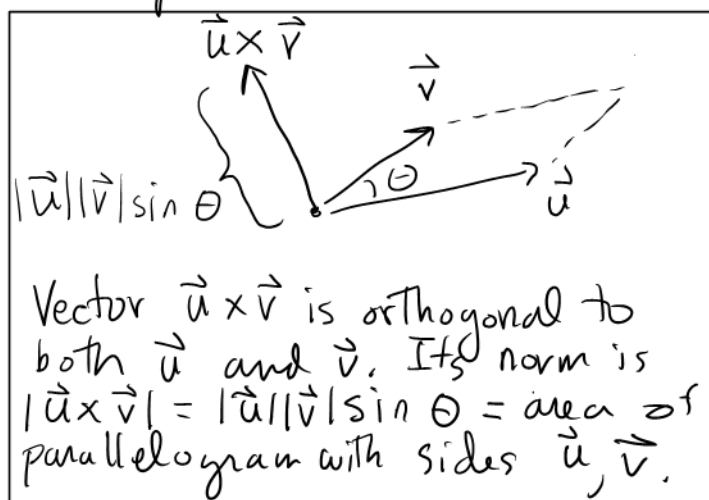 u⃗ × v⃗
v⃗
θ
|u⃗||v⃗| sin θ
u⃗
Vector u⃗ × v⃗ is orthogonal to
both u⃗ and v⃗. Its norm is
|u⃗ × v⃗| = |u⃗||v⃗| sin θ = area of
parallelogram with sides u⃗, v⃗.